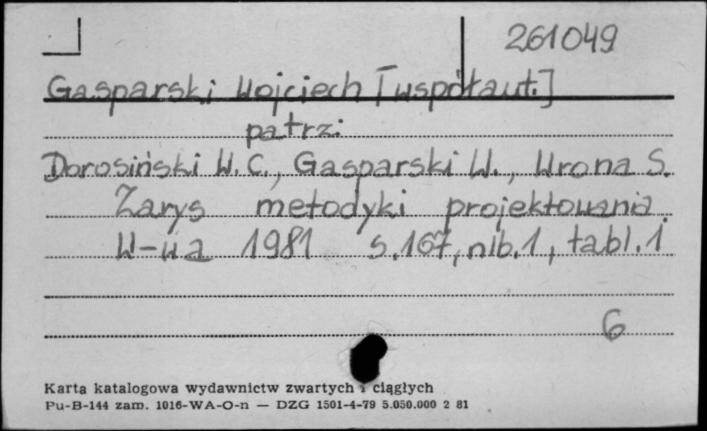 261049
Gasparski Wojciech [współaut.]
patrz:
Dorosiński W.C., Gasparski W., Wrona S.
Zarys metodyki projektowania.
W-wa 1981 s.167, nlb.1, tabl.1
6
Karta katalogowa wydawnictw zwartych i ciągłych
Pu-B-144 zam. 1016-WA-O-n — DZG 1501-4-79 5.050.000 2 81